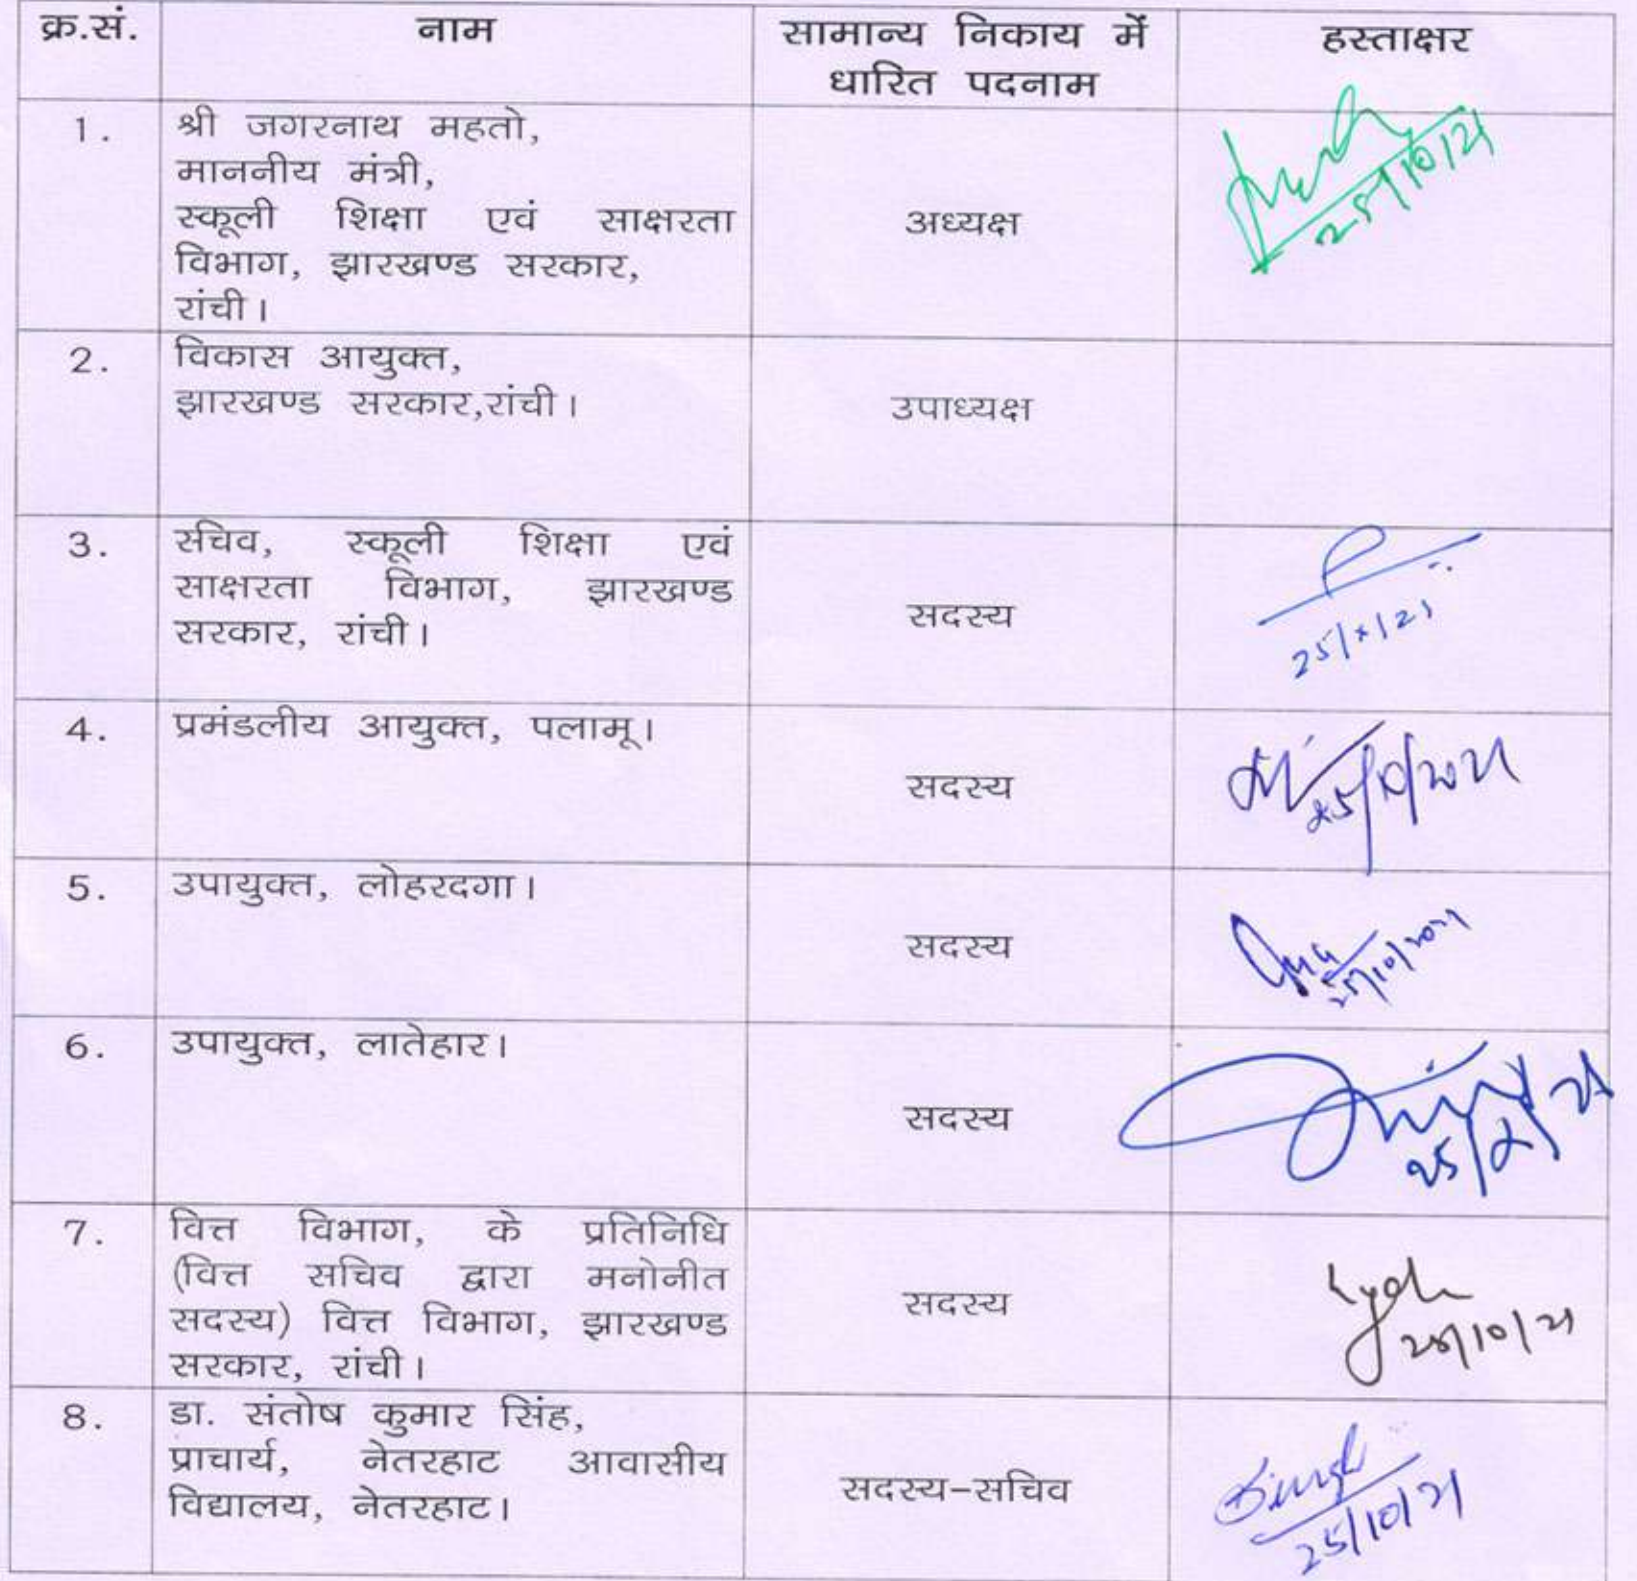 क्र.सं. नाम सामान्य निकाय में धारित पदनाम हस्ताक्षर
1. श्री जगरनाथ महतो,
माननीय मंत्री,
स्कूली शिक्षा एवं साक्षरता
विभाग, झारखण्ड सरकार,
रांची।
अध्यक्ष
25/10/21
2. विकास आयुक्त,
झारखण्ड सरकार,रांची।
उपाध्यक्ष
3. सचिव, स्कूली शिक्षा एवं
साक्षरता विभाग, झारखण्ड
सरकार, रांची।
सदस्य
25/x/21
4. प्रमंडलीय आयुक्त, पलामू।
सदस्य
25/10/2021
5. उपायुक्त, लोहरदगा।
सदस्य
25/10/2021
6. उपायुक्त, लातेहार।
सदस्य
7. वित्त विभाग, के प्रतिनिधि
(वित्त सचिव द्वारा मनोनीत
सदस्य) वित्त विभाग, झारखण्ड
सरकार, रांची।
सदस्य
25/10/21
8. डा. संतोष कुमार सिंह,
प्राचार्य, नेतरहाट आवासीय
विद्यालय, नेतरहाट।
सदस्य-सचिव
Singh
25/10/21